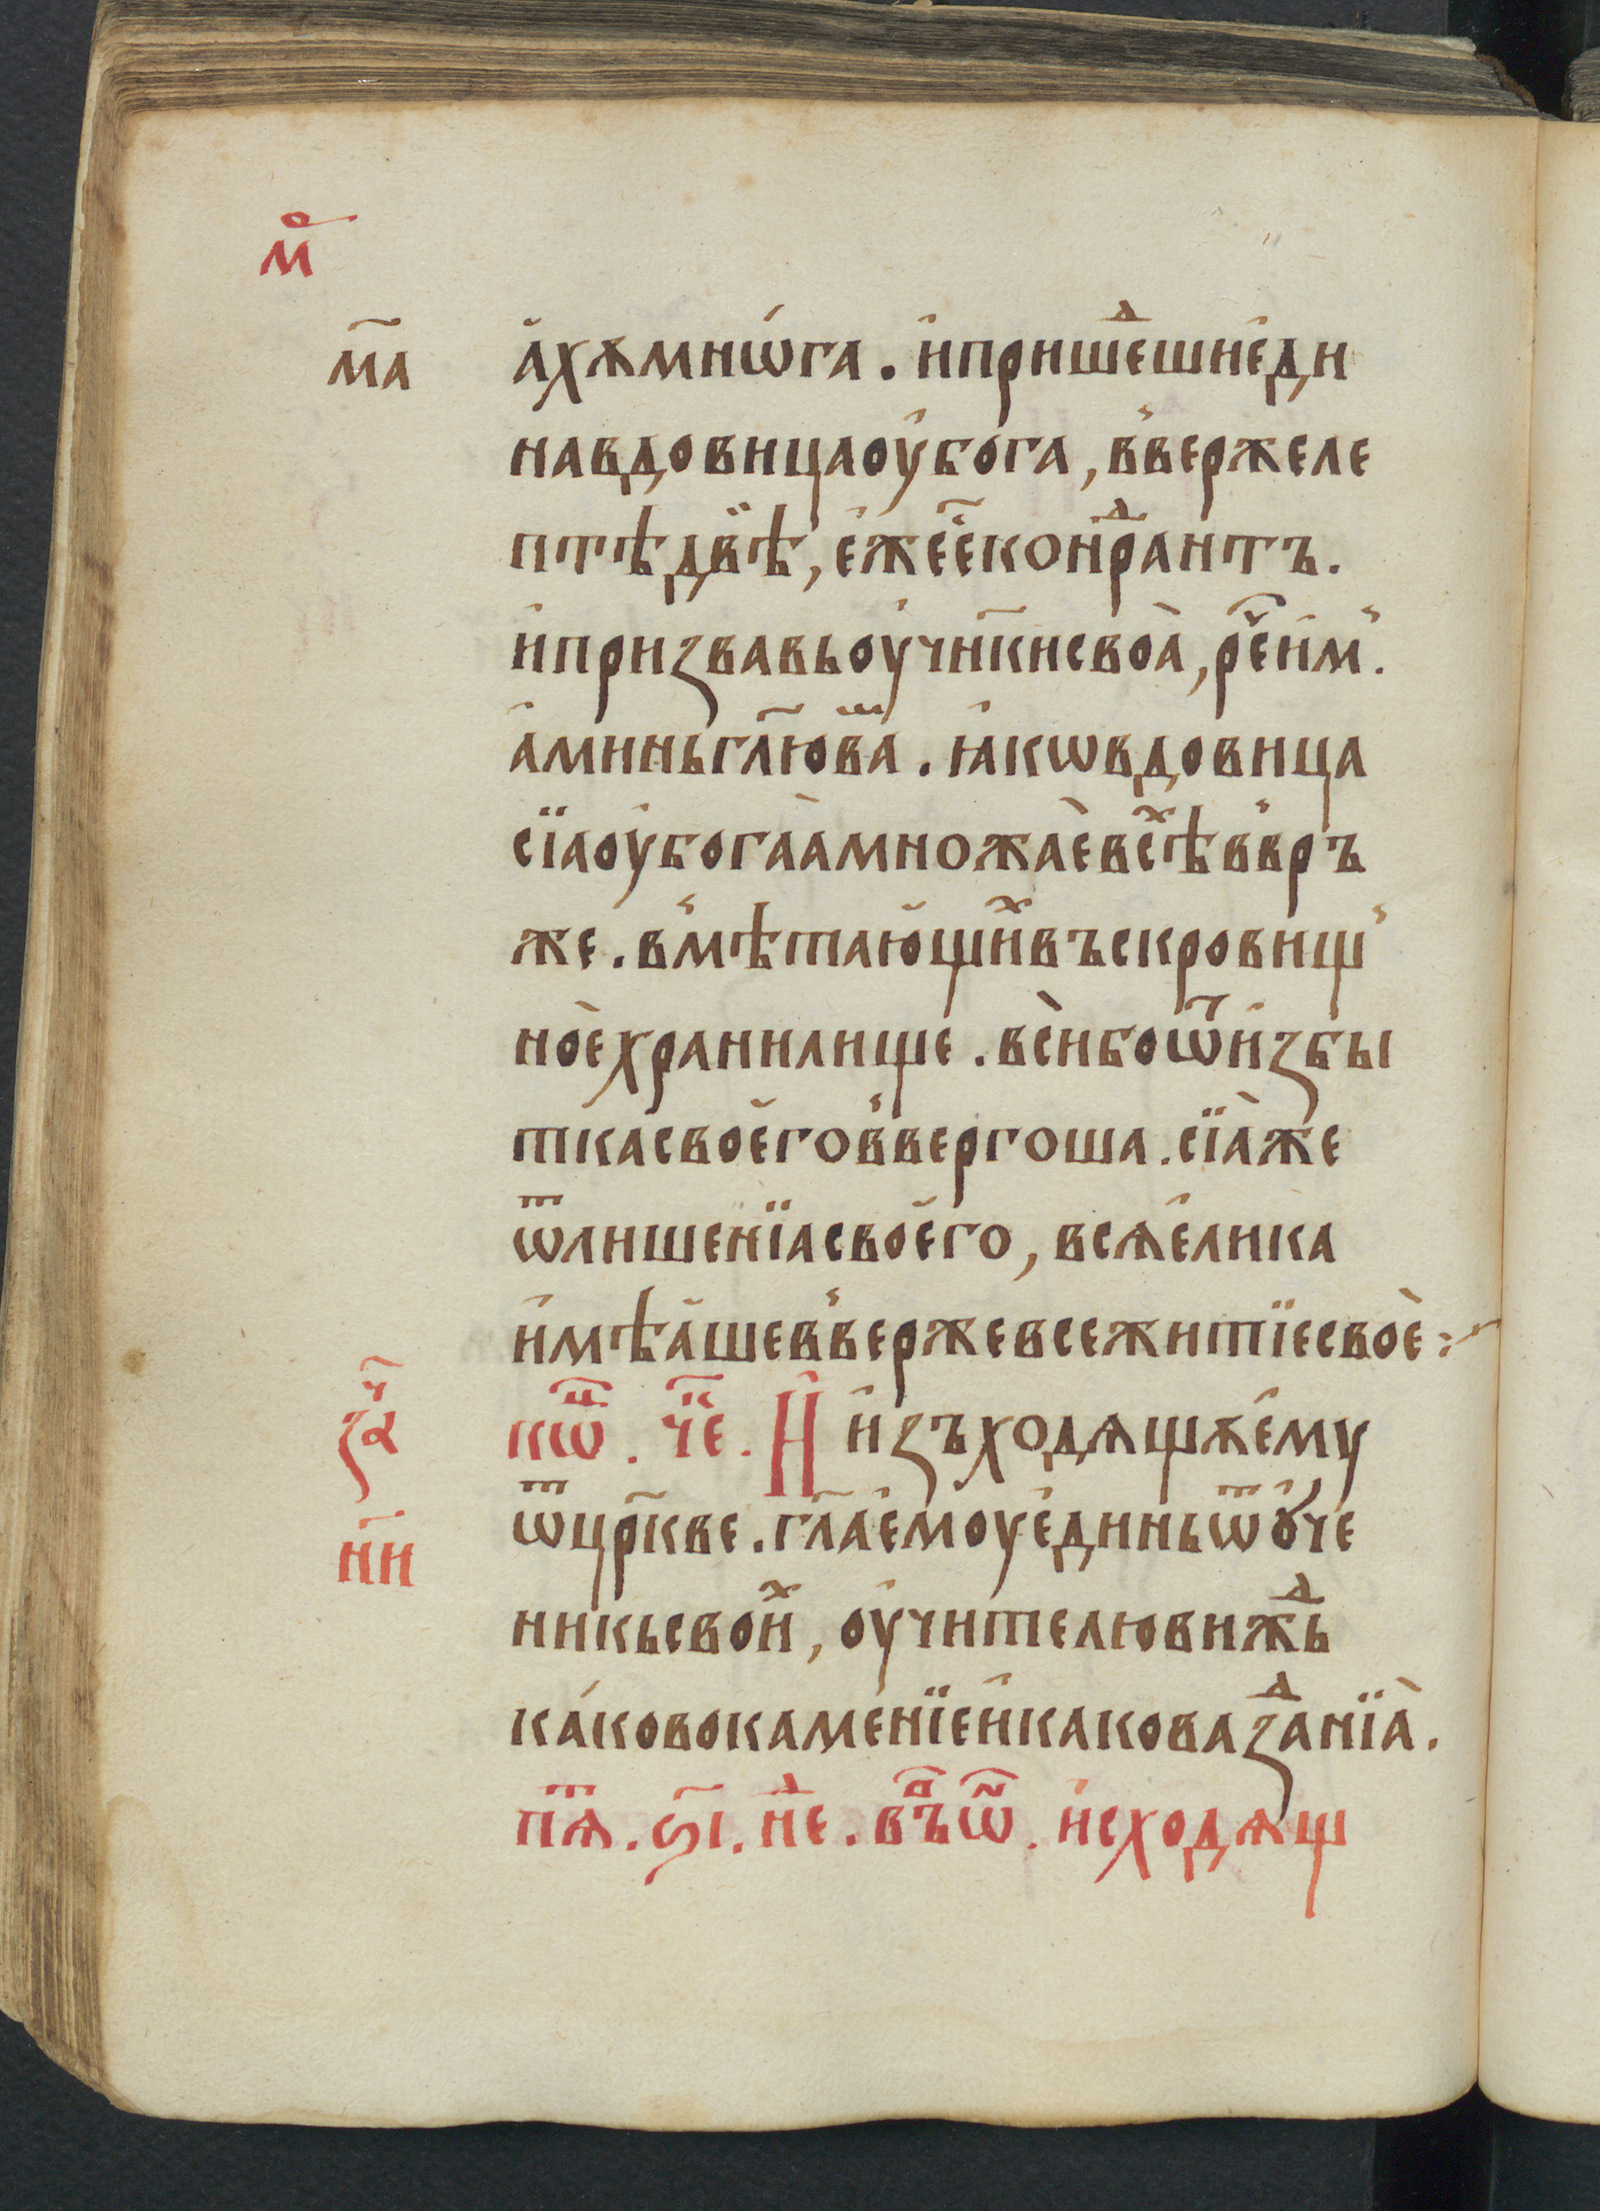 мⷪ҇
м҃а
а҆хѫмнѡ́га . и҆пришеⷣшиеди
навдовицаоу҆бога , в̾вержеле
птѣдвѣ̈ , е҆жеⷭ҇е҆коⷣранитъ .
и҆призвавьоу҆чн҃кисвоѧ̀ , реⷱ҇и҆м̾ .
а҆миньгл҃юваⷨ . ꙗ҆кѡвдовица
сїаоу҆богаа̀множаѐвсѣⷯв̾връ
же . в̾мѣтаю҆щиⷯвъскровищ̾
ноѐхранилище . всѝбоѿи҆збы
ткасвоегов̾вергоша . сїа̀же
ѿлишенїасвоего , всѧе҆лика
и҆мѣа҆шев̾вержевсежитїесвоѐ :~
зⷱ҇а
кѡⷰ҇ . че҃ . И҆ и҆зъходѧщѫе҆му
н҃и
ѿцр҃кве . гл҃ае҆моуе҆диньѿꙋ҆че
никьсвоиⷯ , оу҆чителювижⷣь
ка́ковокаменїеи҆каковазⷣанїа̀ .
пⷮѧ . ѕ҃і . неⷣ . въⷫ҇ѡⷩ҇ . и҆сходѧщ